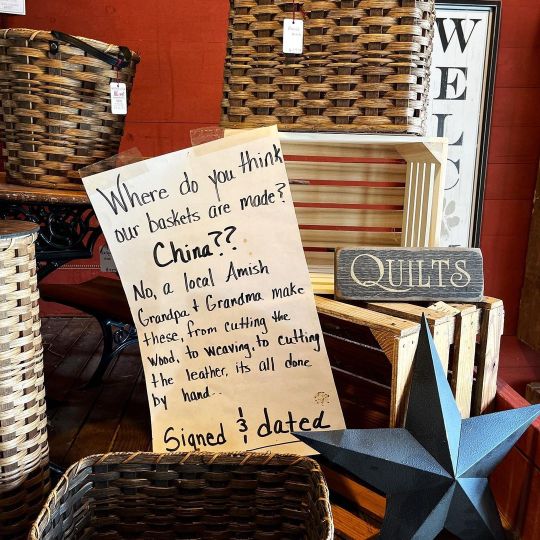 WELC
Where do you think
our baskets are made?
China??
No, a local Amish
Grandpa & Grandma make
these, from cutting the
wood, to weaving, to cutting
the leather, its all done
by hand..
Signed & dated
QUILTS